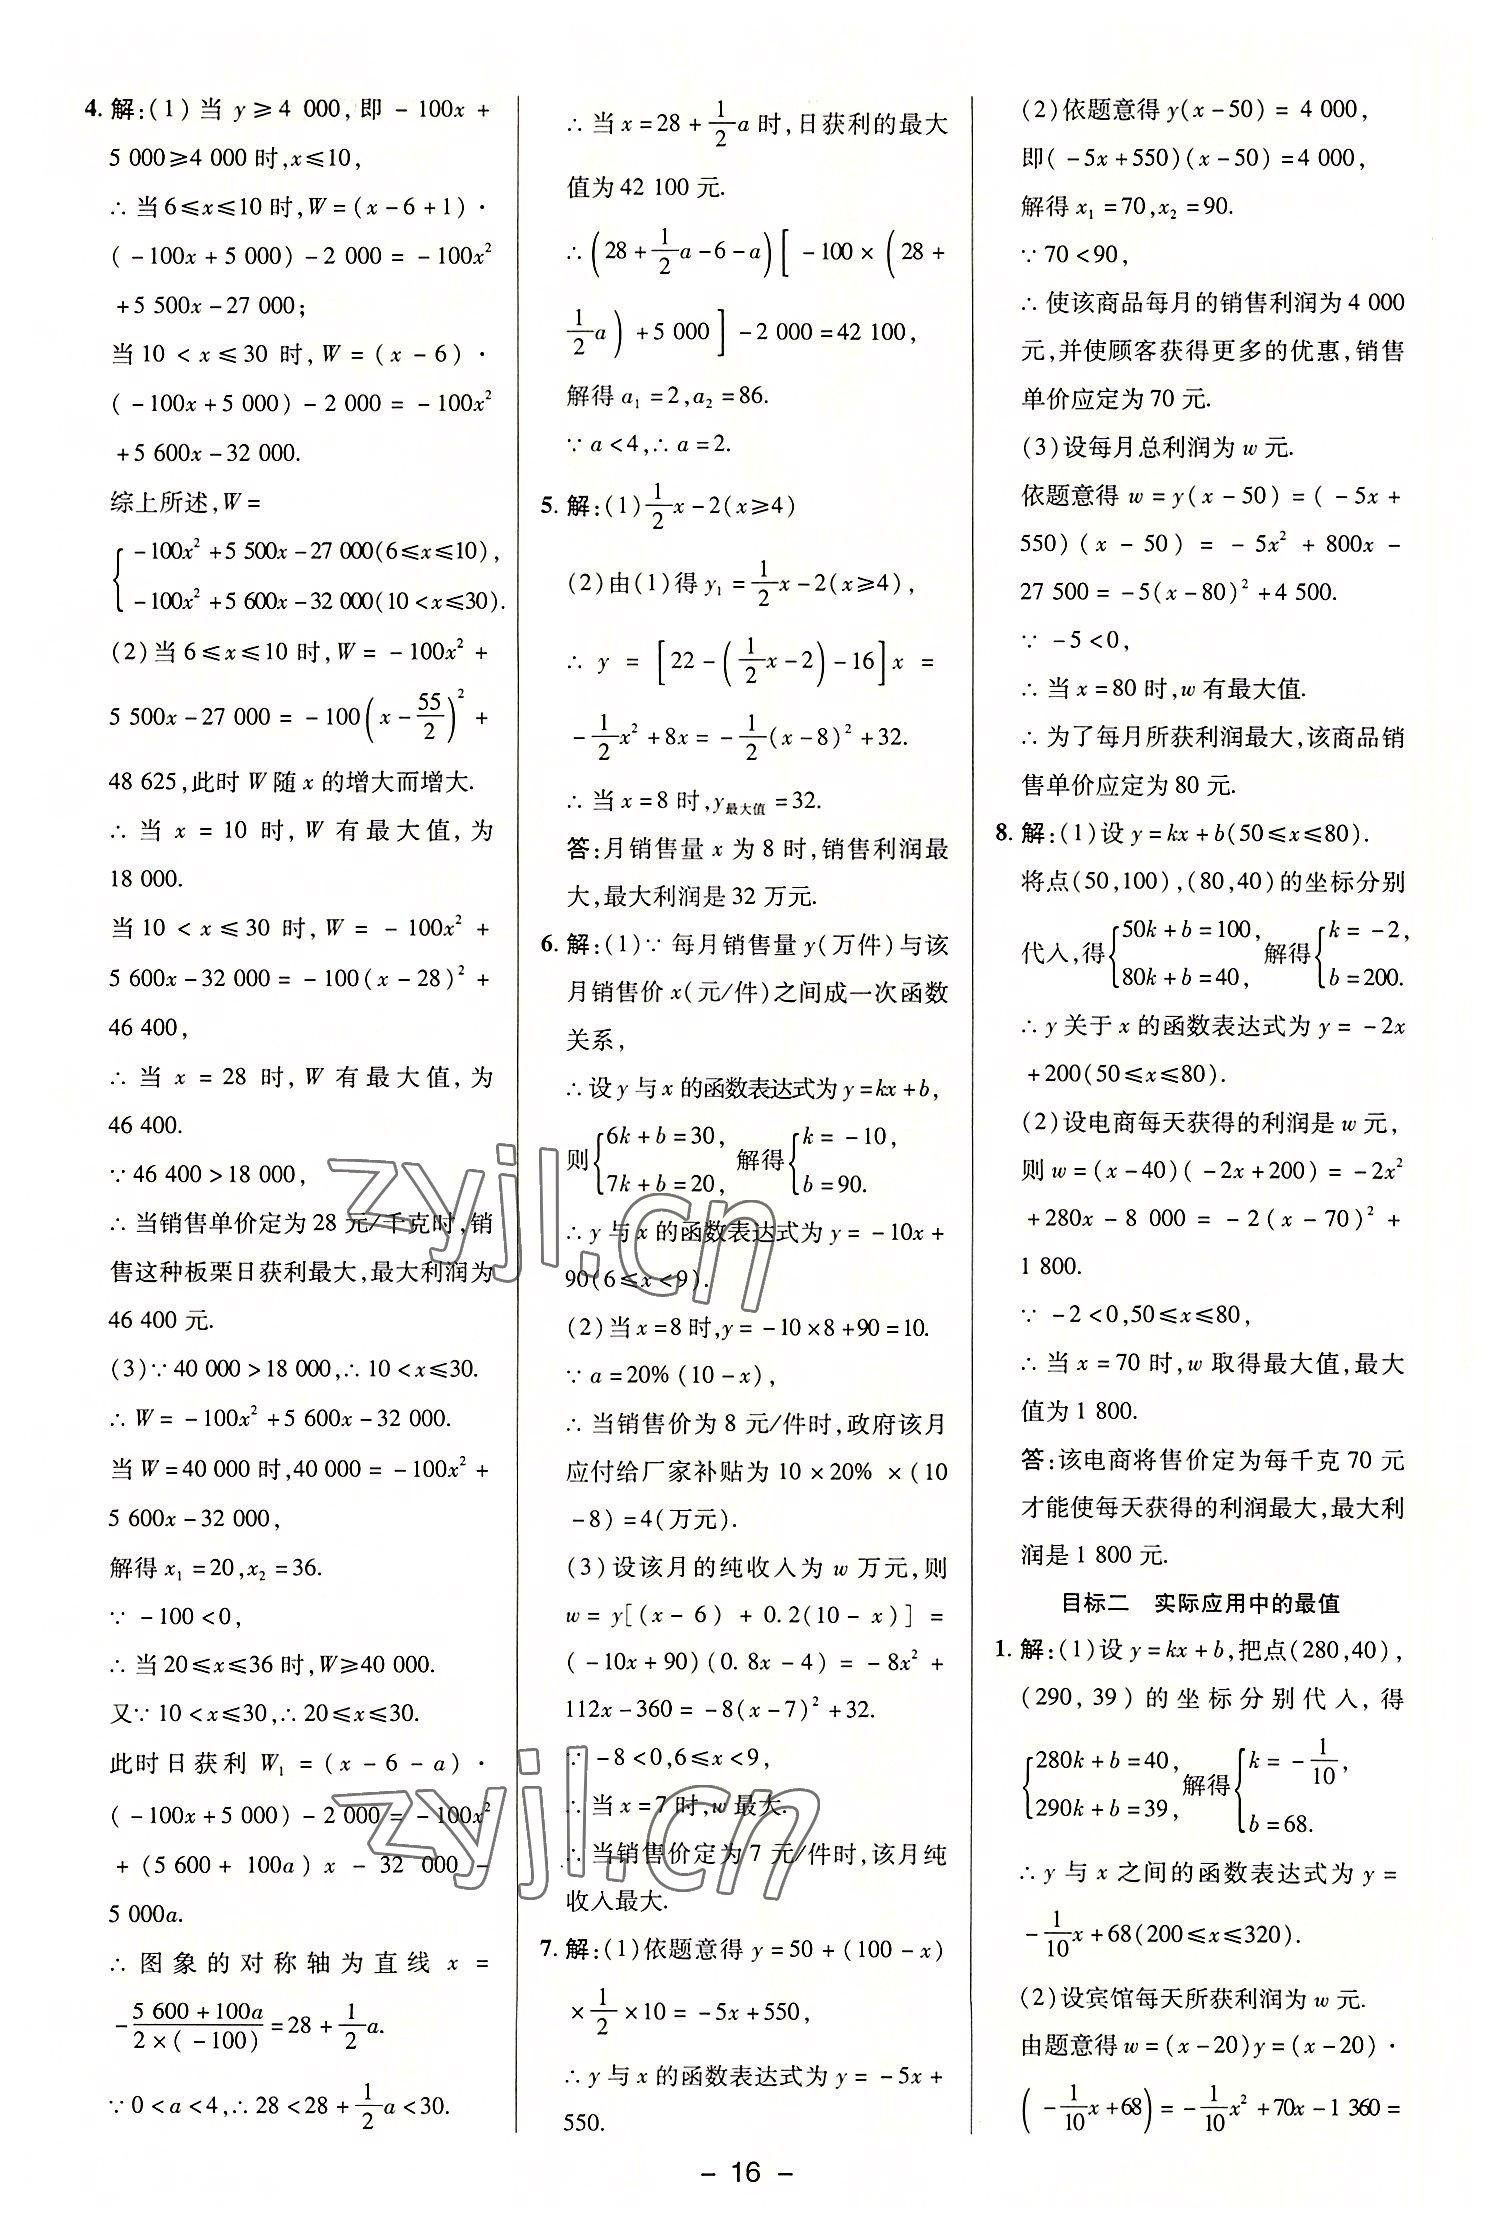 4. 解:(1)当 y⩾4 000,即 -100x+
5 000⩾4 000 时,x⩽10,
∴当6⩽x⩽10时,W=(x-6+1)·
(-100x+5 000)-2 000=-100x²
+5 500x-27 000;
当 10<x⩽30 时,W=(x-6)·
(-100x+5 000)-2 000=-100x²
+5 600x-32 000.
综上所述,W=
{-100x²+5 500x-27 000(6⩽x⩽10),
-100x²+5 600x-32 000(10<x⩽30).
(2)当6⩽x⩽10 时,W=-100x²+
5 500x-27 000=-100(x-55/2)²+
48 625,此时 W 随 x 的增大而增大.
∴当 x=10 时,W 有最大值,为
18 000.
当10<x⩽30 时,W=-100x²+
5 600x-32 000=-100(x-28)²+
46 400,
∴当 x=28 时,W 有最大值,为
46 400.
∵46 400>18 000,
∴当销售单价定为 28 元/千克时,销
售这种板栗日获利最大,最大利润为
46 400 元.
(3)∵40 000>18 000,∴10<x⩽30.
∴W=-100x²+5 600x-32 000.
当W=40 000时,40 000=-100x²+
5 600x-32 000,
解得 x₁=20,x₂=36.
∵-100<0,
∴当20⩽x⩽36时,W⩾40 000.
又∵10<x⩽30,∴20⩽x⩽30.
此时日获利 W₁=(x-6-a)·
(-100x+5 000)-2 000=-100x²
+(5 600+100a)x-32 000-
5 000a.
∴图象的对称轴为直线 x=
-(5 600+100a)/(2×(-100))=28+1/2a.
∵0<a<4,∴28<28+1/2a<30.
∴当x=28+1/2a时,日获利的最大
值为42 100 元.
∴(28+1/2a-6-a)[-100×(28+
1/2a)+5 000]-2 000=42 100,
解得 a₁=2,a₂=86.
∵a<4,∴a=2.
5. 解:(1)1/2x-2(x⩾4)
(2)由(1)得 y₁=1/2x-2(x⩾4),
∴y=[22-(1/2x-2)-16]x=
-1/2x²+8x=-1/2(x-8)²+32.
∴当x=8时,y最大值=32.
答:月销售量 x 为 8 时,销售利润最
大,最大利润是32万元.
6. 解:(1)∵每月销售量y(万件)与该
月销售价x(元/件)之间成一次函数
关系,
∴设y与x的函数表达式为y=kx+b,
则{6k+b=30, 7k+b=20, 解得{k=-10, b=90.
∴y 与 x 的函数表达式为y=-10x+
90(6⩽x<9).
(2)当x=8时,y=-10×8+90=10.
∵a=20%(10-x),
∴当销售价为 8 元/件时,政府该月
应付给厂家补贴为 10×20%×(10
-8)=4(万元).
(3)设该月的纯收入为 w 万元,则
w=y[(x-6)+0.2(10-x)]=
(-10x+90)(0.8x-4)=-8x²+
112x-360=-8(x-7)²+32.
∵-8<0,6⩽x<9,
∴当x=7时,w最大.
∴当销售价定为7元/件时,该月纯
收入最大.
7. 解:(1)依题意得 y=50+(100-x)
×1/2×10=-5x+550,
∴y与x的函数表达式为y=-5x+
550.
(2)依题意得y(x-50)=4 000,
即(-5x+550)(x-50)=4 000,
解得 x₁=70,x₂=90.
∵70<90,
∴使该商品每月的销售利润为4 000
元,并使顾客获得更多的优惠,销售
单价应定为70元.
(3)设每月总利润为 w 元.
依题意得 w=y(x-50)=(-5x+
550)(x-50)=-5x²+800x-
27 500=-5(x-80)²+4 500.
∵-5<0,
∴当x=80时,w有最大值.
∴为了每月所获利润最大,该商品销
售单价应定为80元.
8. 解:(1)设 y=kx+b(50⩽x⩽80).
将点(50,100),(80,40)的坐标分别
代入,得{50k+b=100, 80k+b=40, 解得{k=-2, b=200.
∴y关于x的函数表达式为y=-2x
+200(50⩽x⩽80).
(2)设电商每天获得的利润是w元,
则w=(x-40)(-2x+200)=-2x²
+280x-8 000=-2(x-70)²+
1 800.
∵-2<0,50⩽x⩽80,
∴当x=70时,w取得最大值,最大
值为1 800.
答:该电商将售价定为每千克 70 元
才能使每天获得的利润最大,最大利
润是1 800元.
目标二 实际应用中的最值
1. 解:(1)设y=kx+b,把点(280,40),
(290,39)的坐标分别代入,得
{280k+b=40, 290k+b=39, 解得{k=-1/10, b=68.
∴y 与 x 之间的函数表达式为 y=
-1/10x+68(200⩽x⩽320).
(2)设宾馆每天所获利润为w元.
由题意得w=(x-20)y=(x-20)·
(-1/10x+68)=-1/10x²+70x-1 360=
- 16 -
zyjl.cn
zyjl.cn